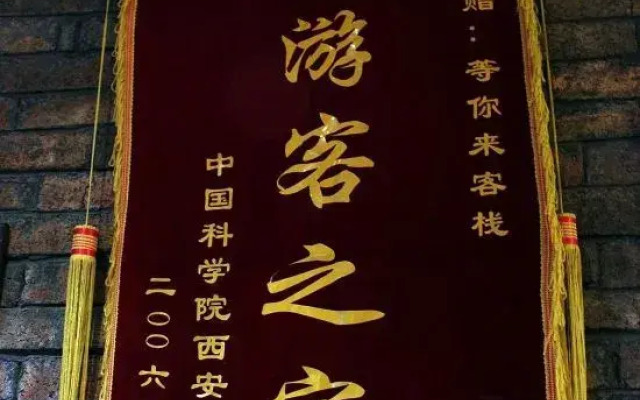 赠：等你来客栈
游客之
中国科学院西安
二〇〇六